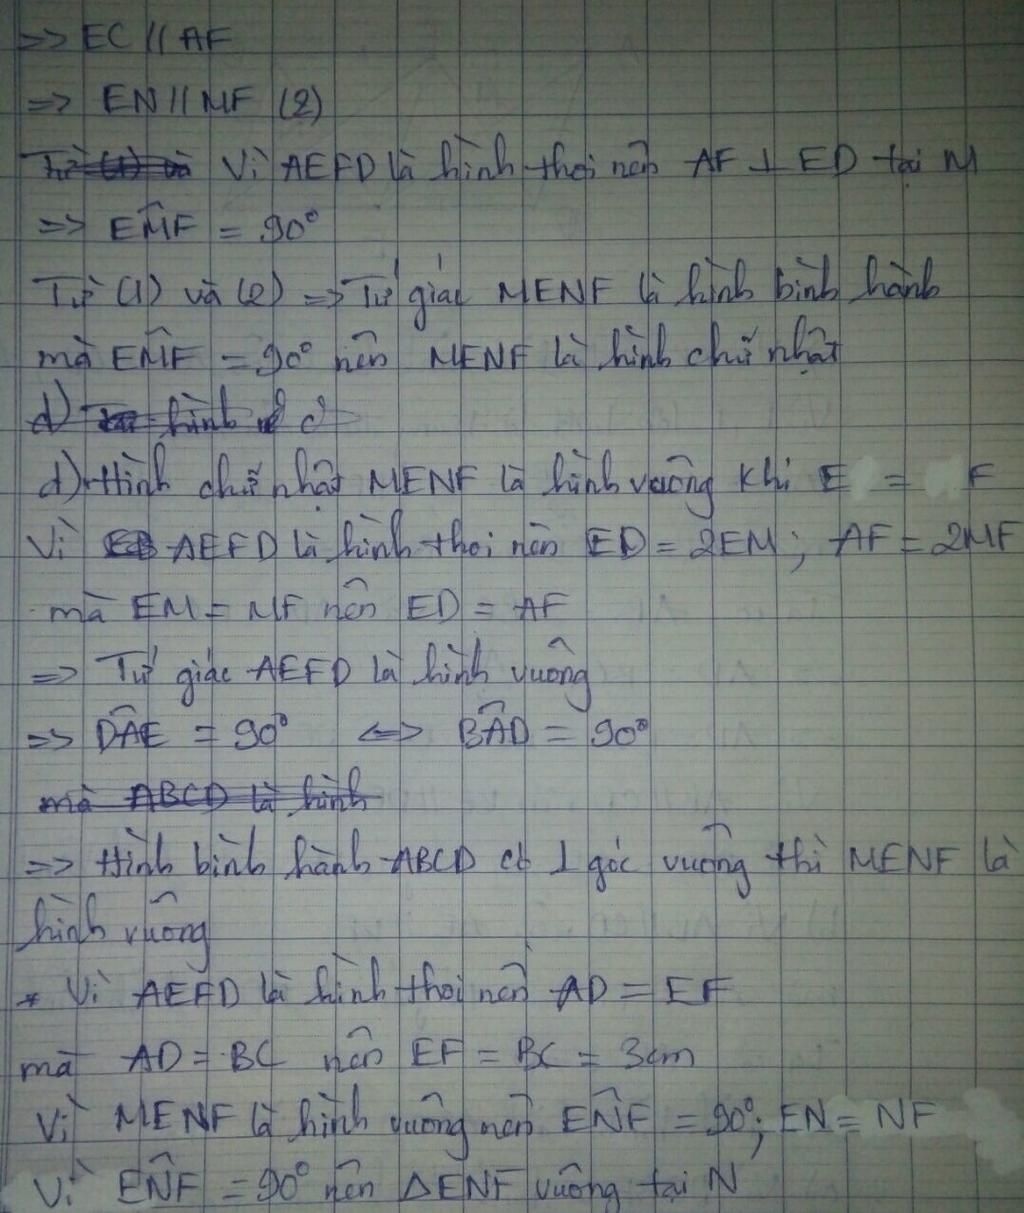 => EC // AF
=> EN // MF (2)
Từ (1) và Vì AEFD là hình thoi nên AF ⊥ ED tại M
=> EMF̂ = 90°
Từ (1) và (2) => Tứ giác MENF là hình bình hành
mà EMF̂ = 90° nên MENF là hình chữ nhật
d) hình
d) Hình chữ nhật MENF là hình vuông khi E = F
Vì AEFD là hình thoi nên ED = 2EM; AF = 2MF
mà EM = MF nên ED = AF
=> Tứ giác AEFD là hình vuông
=> DÂE = 90° <=> BÂD = 90°
mà ABCD là hình
=> Hình bình hành ABCD có 1 góc vuông thì MENF là
hình vuông
* Vì AEFD là hình thoi nên AD = EF
mà AD = BC nên EF = BC = 3cm
Vì MENF là hình vuông nên ENF̂ = 90°; EN = NF
Vì ENF̂ = 90° nên ΔENF vuông tại N